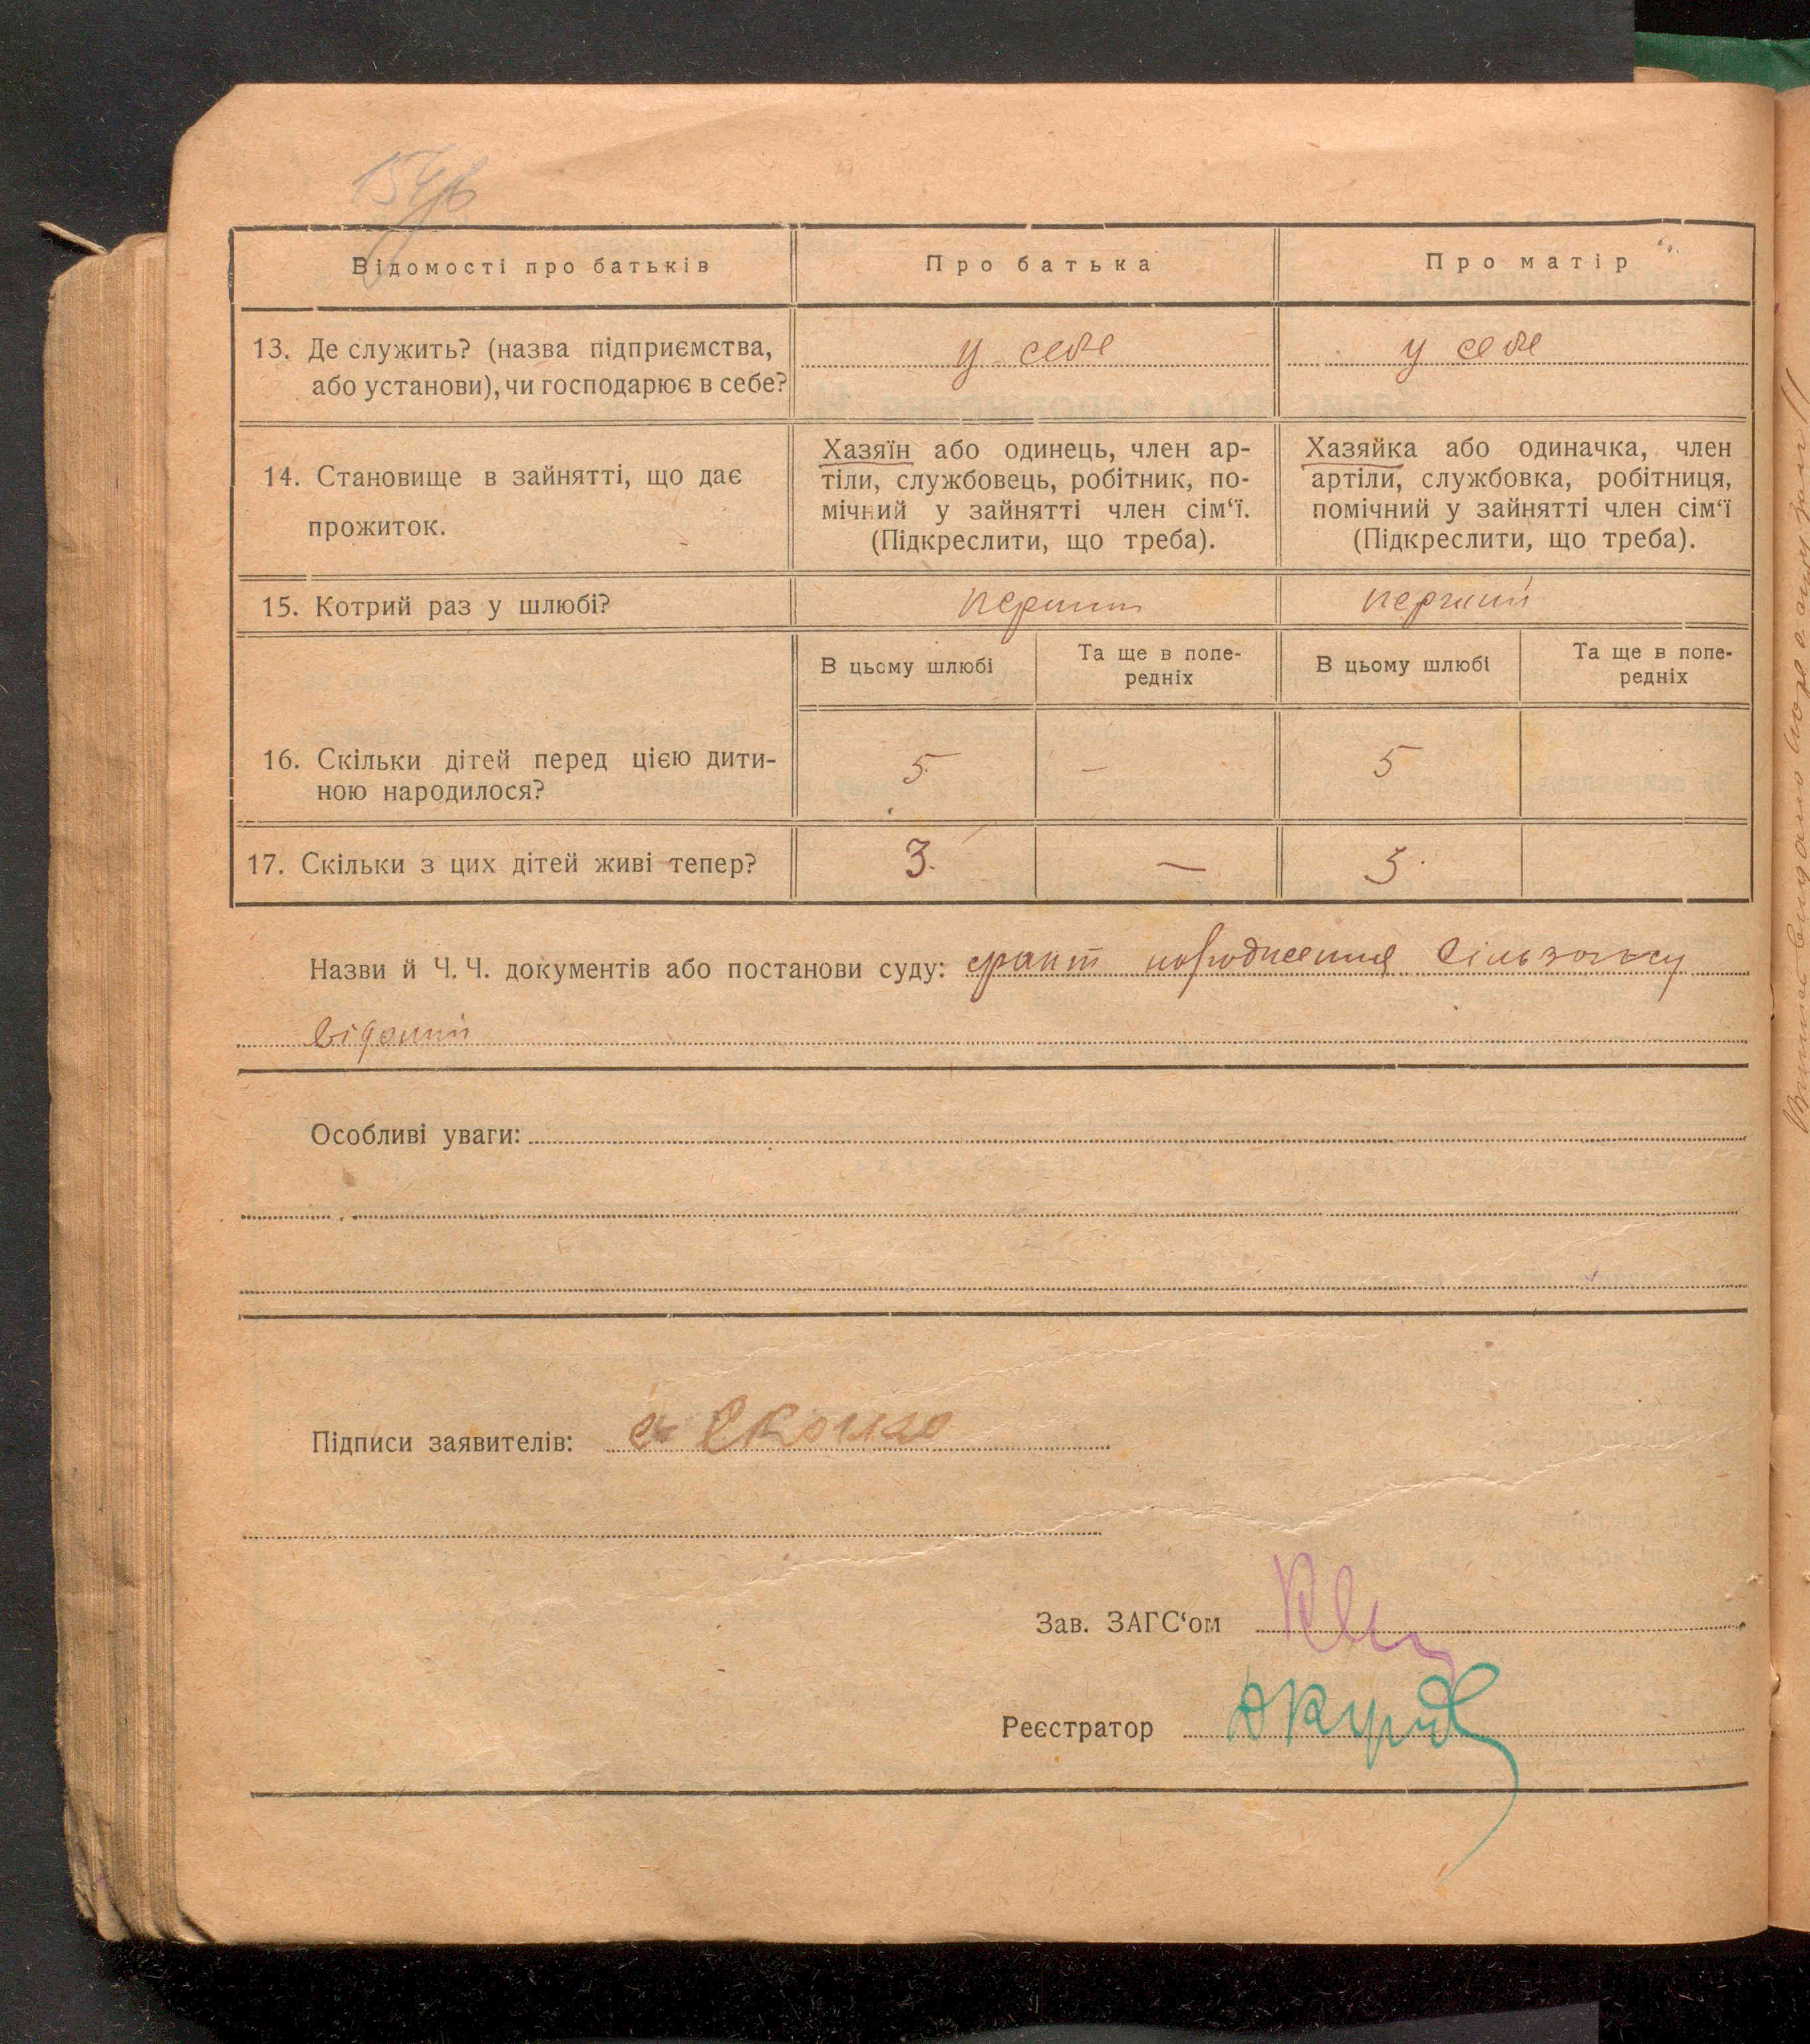 Відомості про батьків
Про батька
Про матір
13. Де служить? (назва підприємства,
або установи), чи господарює в себе?
у себе
у себе
14. Становище в зайнятті, що дає
прожиток.
Хазяїн або одинець, член ар-
тіли, службовець, робітник, по-
мічний у зайнятті член сім‘ї.
(Підкреслити, що треба).
Хазяйка або одиначка, член
артіли, службовка, робітниця,
помічний у зайнятті член сім‘ї
(Підкреслити, що треба).
15. Котрий раз у шлюбі?
перший
перший
В цьому шлюбі
Та ще в попе-
редніх
В цьому шлюбі
Та ще в попе-
редніх
16. Скільки дітей перед цією дити-
ною народилося?
5
–
5
17. Скільки з цих дітей живі тепер?
3.
—
Назви й Ч. Ч. документів або постанови суду: факт народження сільзагсу
відомий
Особливі уваги:
Підписи заявителів:
Зав. ЗАГС‘ом
Реєстратор